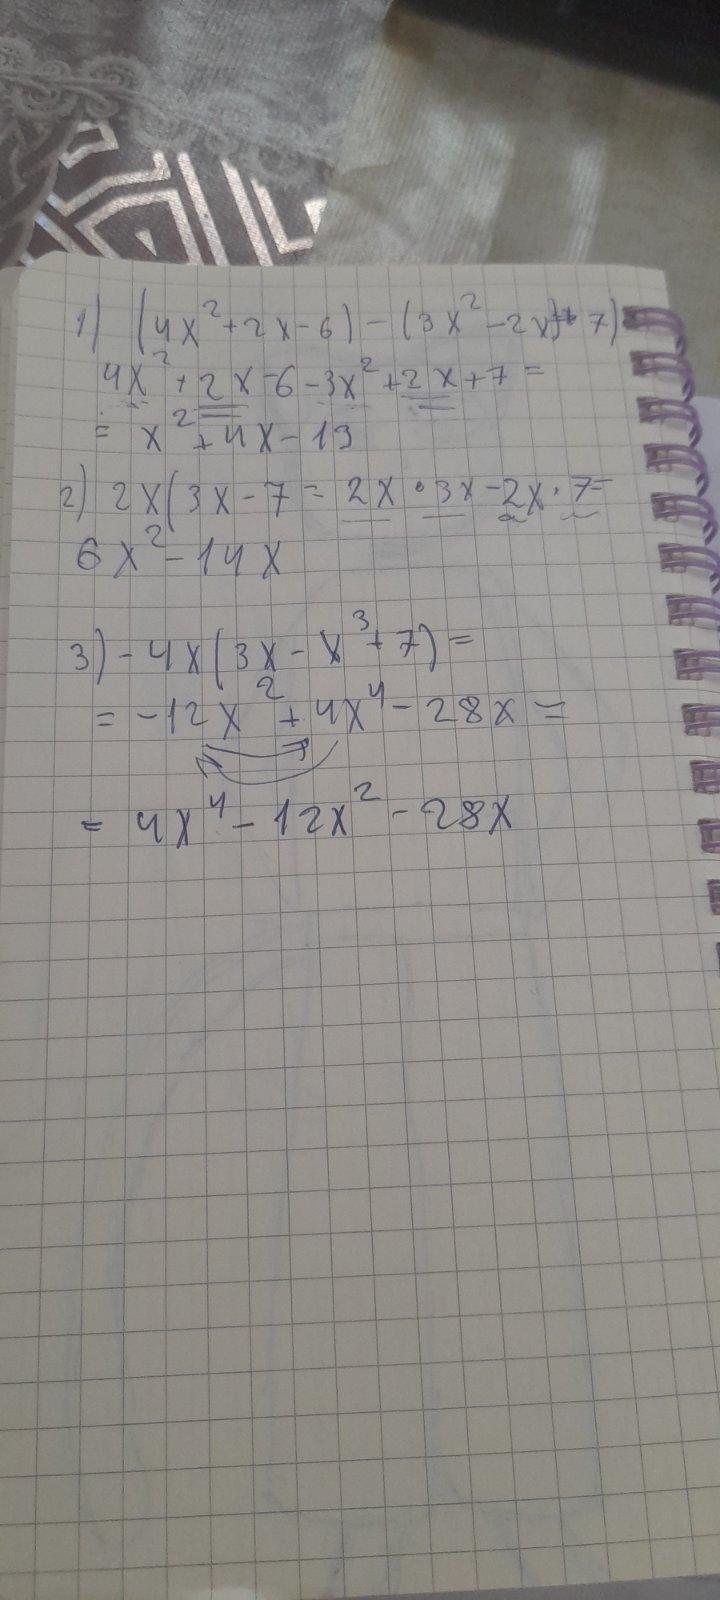 1) (4x² + 2x - 6) - (3x² - 2x + 7)
4x² + 2x - 6 - 3x² + 2x + 7 =
= x² + 4x - 13
2) 2x(3x - 7 = 2x · 3x - 2x · 7 =
6x² - 14x
3) - 4x(3x - x³ + 7) =
= -12x² + 4x⁴ - 28x =
= 4x⁴ - 12x² - 28x